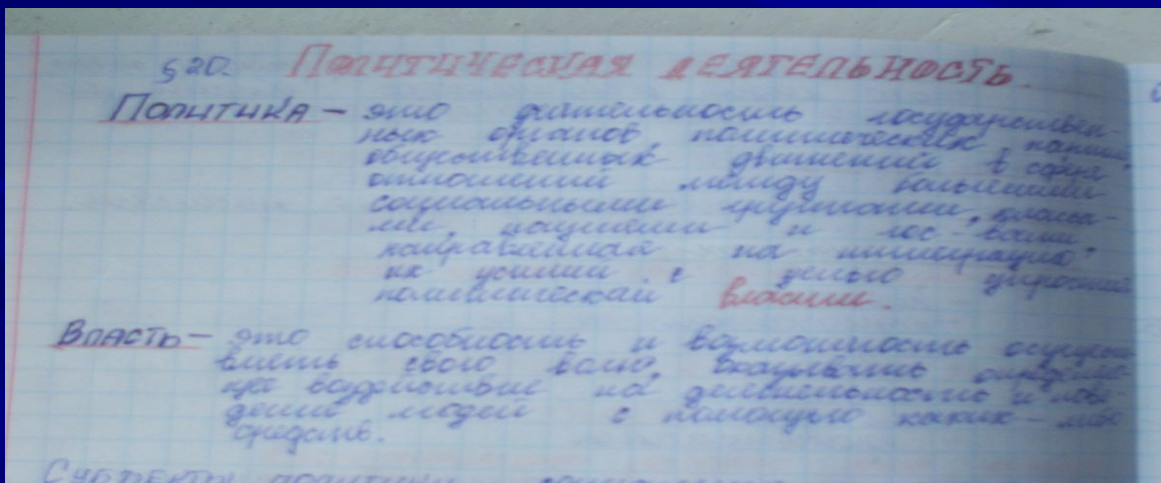 §20. Политическая деятельность.
Политика – это деятельность государствен-
ных органов, политических партий,
общественных движений в сфере
отношений между большими
социальными группами, класса-
ми, нациями и гос-вами,
направленная на интеграцию
их усилий с целью упрочения
политической власти.
Власть – это способность и возможность осущест
влять свою волю, оказывать определён
ное воздействие на деятельность и пове-
дение людей с помощью каких-либо
средств.
Субъекты политики